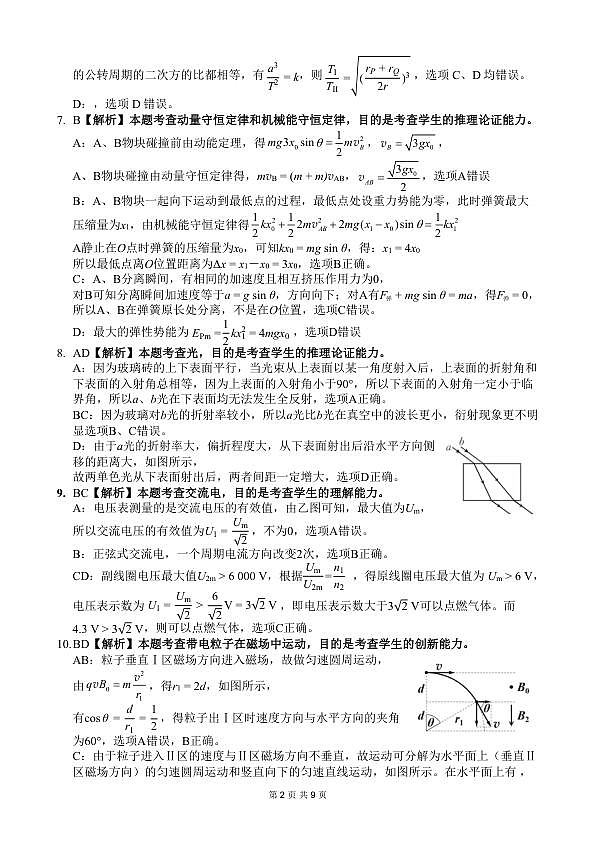 的公转周期的二次方的比都相等，有 a³/T² = k，则 T_I/T_II = √((r_P + r_Q)/2r)³，选项 C、D 均错误。
D：，选项 D 错误。
7. B【解析】本题考查动量守恒定律和机械能守恒定律，目的是考查学生的推理论证能力。
A：A、B物块碰撞前由动能定理，得 mg3x₀ sin θ = 1/2 mv_B²，v_B = √(3gx₀)，
A、B物块碰撞由动量守恒定律得，mv_B = (m + m)v_AB，v_AB = √(3gx₀)/2，选项A错误
B：A、B物块一起向下运动到最低点的过程，最低点处设重力势能为零，此时弹簧最大
压缩量为x₁，由机械能守恒定律得 1/2 kx₀² + 1/2 2mv_AB² + 2mg(x₁ − x₀)sin θ = 1/2 kx₁²
A静止在O点时弹簧的压缩量为x₀，可知kx₀ = mg sin θ，得：x₁ = 4x₀
所以最低点离O位置距离为Δx = x₁－x₀ = 3x₀，选项B正确。
C：A、B分离瞬间，有相同的加速度且相互挤压作用力为0，
对B可知分离瞬间加速度等于a = g sin θ，方向向下；对A有F弹 + mg sin θ = ma，得F弹 = 0，
所以A、B在弹簧原长处分离，不是在O位置，选项C错误。
D：最大的弹性势能为 E_Pm = 1/2 kx₁² = 4mgx₀，选项D错误
8. AD【解析】本题考查光，目的是考查学生的推理论证能力。
A：因为玻璃砖的上下表面平行，当光束从上表面以某一角度射入后，上表面的折射角和
下表面的入射角总相等，因为上表面的入射角小于90°，所以下表面的入射角一定小于临
界角，所以a、b光在下表面均无法发生全反射，选项A正确。
BC：因为玻璃对b光的折射率较小，所以a光比b光在真空中的波长更小，衍射现象更不明
显选项B、C错误。
D：由于a光的折射率大，偏折程度大，从下表面射出后沿水平方向侧
移的距离大，如图所示，
故两单色光从下表面射出后，两者间距一定增大，选项D正确。
a b
9. BC【解析】本题考查交流电，目的是考查学生的理解能力。
A：电压表测量的是交流电压的有效值，由乙图可知，最大值为U_m，
所以交流电压的有效值为U₁ = U_m/√2，不为0，选项A错误。
B：正弦式交流电，一个周期电流方向改变2次，选项B正确。
CD：副线圈电压最大值U_2m > 6 000 V，根据 U_m/U_2m = n₁/n₂，得原线圈电压最大值为 U_m > 6 V，
电压表示数为 U₁ = U_m/√2 > 6/√2 V = 3√2 V，即电压表示数大于3√2 V可以点燃气体。而
4.3 V > 3√2 V，则可以点燃气体，选项C正确。
10. BD【解析】本题考查带电粒子在磁场中运动，目的是考查学生的创新能力。
AB：粒子垂直Ⅰ区磁场方向进入磁场，故做匀速圆周运动，
由 qvB₀ = m v²/r₁，得r₁ = 2d，如图所示，
有cos θ = d/r₁ = 1/2，得粒子出Ⅰ区时速度方向与水平方向的夹角
为60°，选项A错误，B正确。
v
d B₀
d θ r₁ θ v B₂
C：由于粒子进入Ⅱ区的速度与Ⅱ区磁场方向不垂直，故运动可分解为水平面上（垂直Ⅱ
区磁场方向）的匀速圆周运动和竖直向下的匀速直线运动，如图所示。在水平面上有，
第 2 页 共 9 页